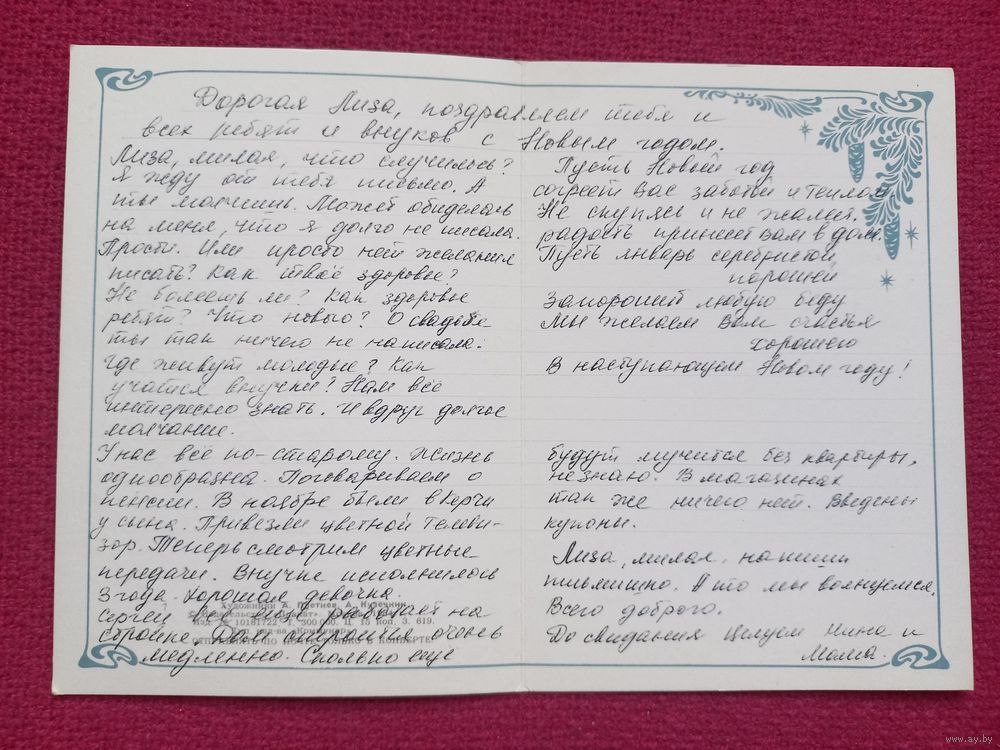 Дорогая Лиза, поздравляем тебя и
всех ребят и внуков с Новым годом.
Лиза, милая, что случилось?
Я жду от тебя письмо. А
ты молчишь. Может обиделась
на меня, что я долго не писала.
Прости. Или просто нет желания
писать? Как твоё здоровье?
Не болеешь ли? Как здоровье
ребят? Что нового? О свадьбе
ты так ничего не написала.
Где живут молодые? Как
учатся внучки? Нам всё
интересно знать. И вдруг долгое
молчание.
У нас всё по-старому. Жизнь
однообразна. Поговариваем о
пенсии. В ноябре были в Керчи
у сына. Привезли цветной телеви-
зор. Теперь смотрим цветные
передачи. Внучке исполнилось
3 года. Хорошая девочка.
Сергей работает на
стройке. Дом очень
медленно. Сколько ещё
Пусть Новый год
согреет вас заботой и теплом
Не скупясь и не жалея,
радость принесет вам в дом.
Пусть январь серебристой
порошей
Запорошит любую беду
Мы желаем Вам счастья
хорошего
В наступающем Новом году!
будут мучится без квартиры,
не знаю. В магазинах
так же ничего нет. Введены
купоны.
Лиза, милая, напиши
письмишко. А то мы волнуемся.
Всего доброго.
До свидания Целуем Нина и
Мама.
www.ay.by